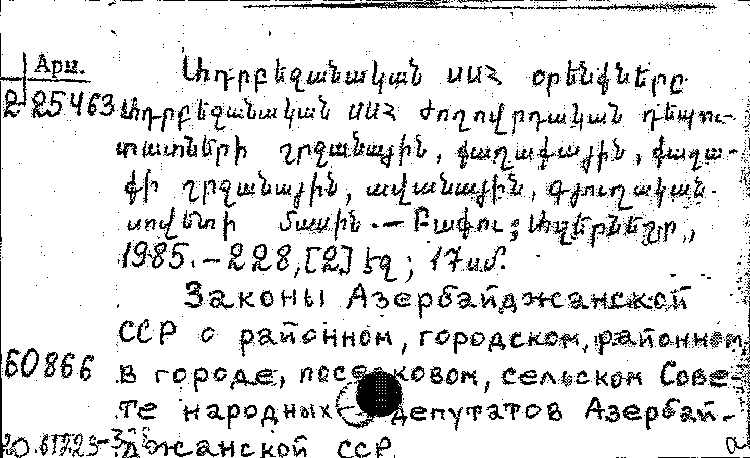 Арм.
2-25463
Ադրբեջանական ՍՍՀ օրենքները
Ադրբեջանական ՍՍՀ ժողովրդական դեպու-
տատների շրջանային, քաղաքային, քաղա-
քի շրջանային, ավանային, գյուղական
սովետի մասին.— Բաքու; Ազերնեշր,
1985.—228,[2] էջ; 17սմ.
Законы Азербайджанской
ССР о районном, городском, районном
60866
в городе, поселковом, сельском Сове-
те народных депутатов Азербай-
джанской ССР